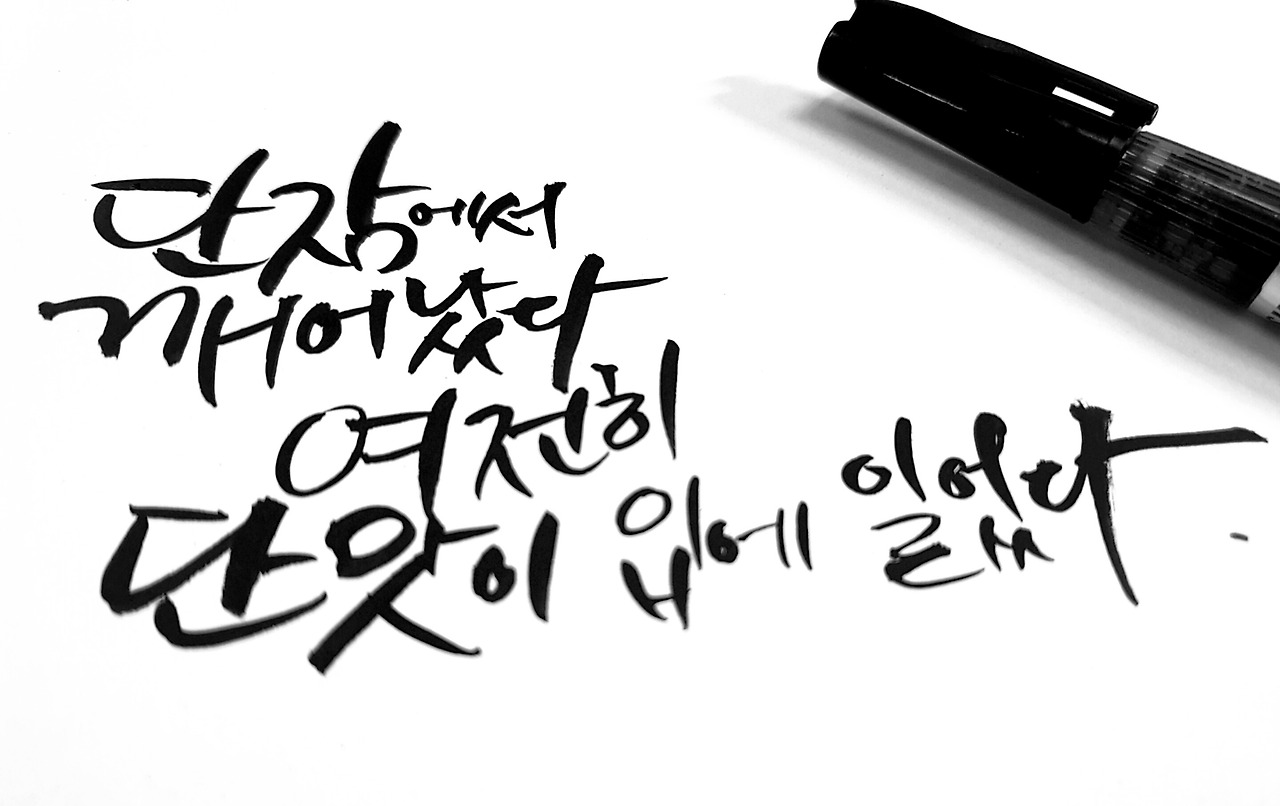 단잠에서
깨어났다
여전히
단맛이 입에 일었다.